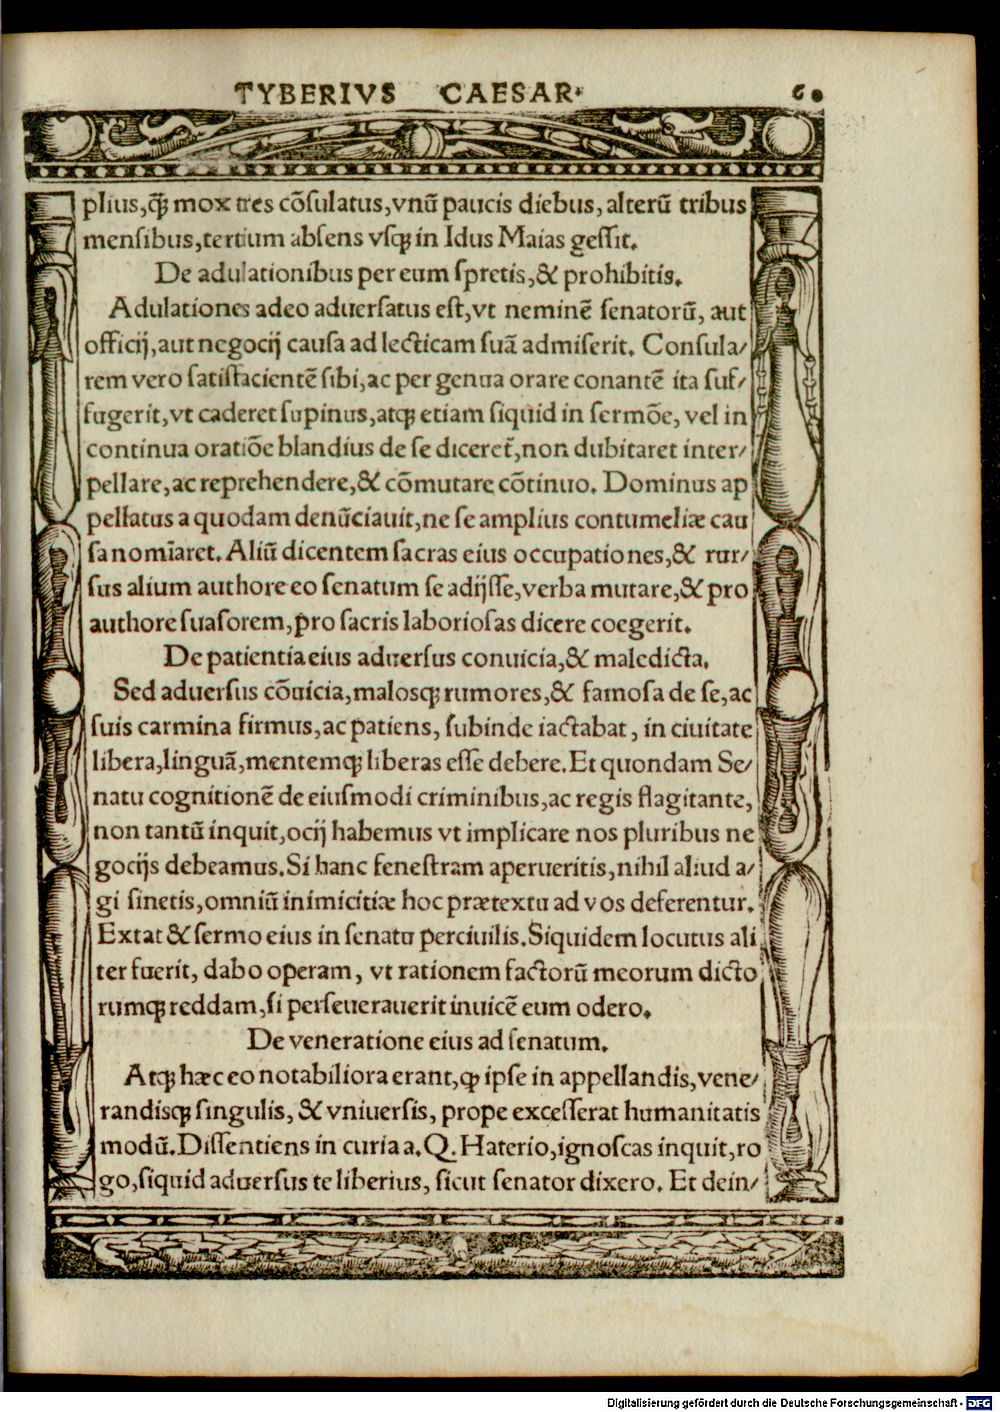 TYBERIVS CAESAR· 60
plius,ꝙ̃ mox tres cõſulatus,vnũ paucis diebus, alterũ tribus
menſibus,tertium abſens vſqꝫ in Idus Maias geſſit.
De adulationibus per eum ſpretis,& prohibitis.
Adulationes adeo aduerſatus eſt,vt neminẽ ſenatorũ, aut
officij,aut negocij cauſa ad lecticam ſuã admiſerit. Conſula/
rem vero ſatiſfacientẽ ſibi,ac per genua orare conantẽ ita ſuf/
fugerit,vt caderet ſupinus,atqꝫ etiam ſiquid in ſermõe, vel in
continua oratiõe blandius de ſe diceret̃,non dubitaret inter/
pellare, ac reprehendere,& cõmutare cõtinuo. Dominus ap
pellatus a quodam denũciauit,ne ſe amplius contumeliæ cau
ſa nomĩaret. Aliũ dicentem ſacras eius occupationes,& rur/
ſus alium authore eo ſenatum ſe adijſſe,verba mutare,& pro
authore ſuaſorem,pro ſacris laborioſas dicere coegerit.
De patientia eius aduerſus conuicia,& maledicta.
Sed aduerſus cõuicia,maloſqꝫ rumores,& famoſa de ſe,ac
ſuis carmina firmus,ac patiens, ſubinde iactabat, in ciuitate
libera,linguã,mentemqꝫ liberas eſſe debere.Et quondam Se/
natu cognitionẽ de eiuſmodi criminibus,ac regis flagitante,
non tantũ inquit,ocij habemus vt implicare nos pluribus ne
gocijs debeamus.Si hanc feneſtram aperueritis,nihil aliud a/
gi ſinetis,omniũ inimicitiæ hoc prætextu ad vos deferentur.
Extat & ſermo eius in ſenatu perciuilis.Siquidem locutus ali
ter fuerit, dabo operam, vt rationem factorũ meorum dicto
rumqꝫ reddam,ſi perſeuerauerit inuicẽ eum odero.
De veneratione eius ad ſenatum.
Atqꝫ hæc eo notabiliora erant,ꝙ ipſe in appellandis,vene/
randiſqꝫ ſingulis, & vniuerſis, prope exceſſerat humanitatis
modũ.Diſſentiens in curia a.Q. Haterio,ignoſcas inquit,ro
go,ſiquid aduerſus te liberius, ſicut ſenator dixero. Et dein/
Digitalisierung gefördert durch die Deutsche Forschungsgemeinschaft - DFG